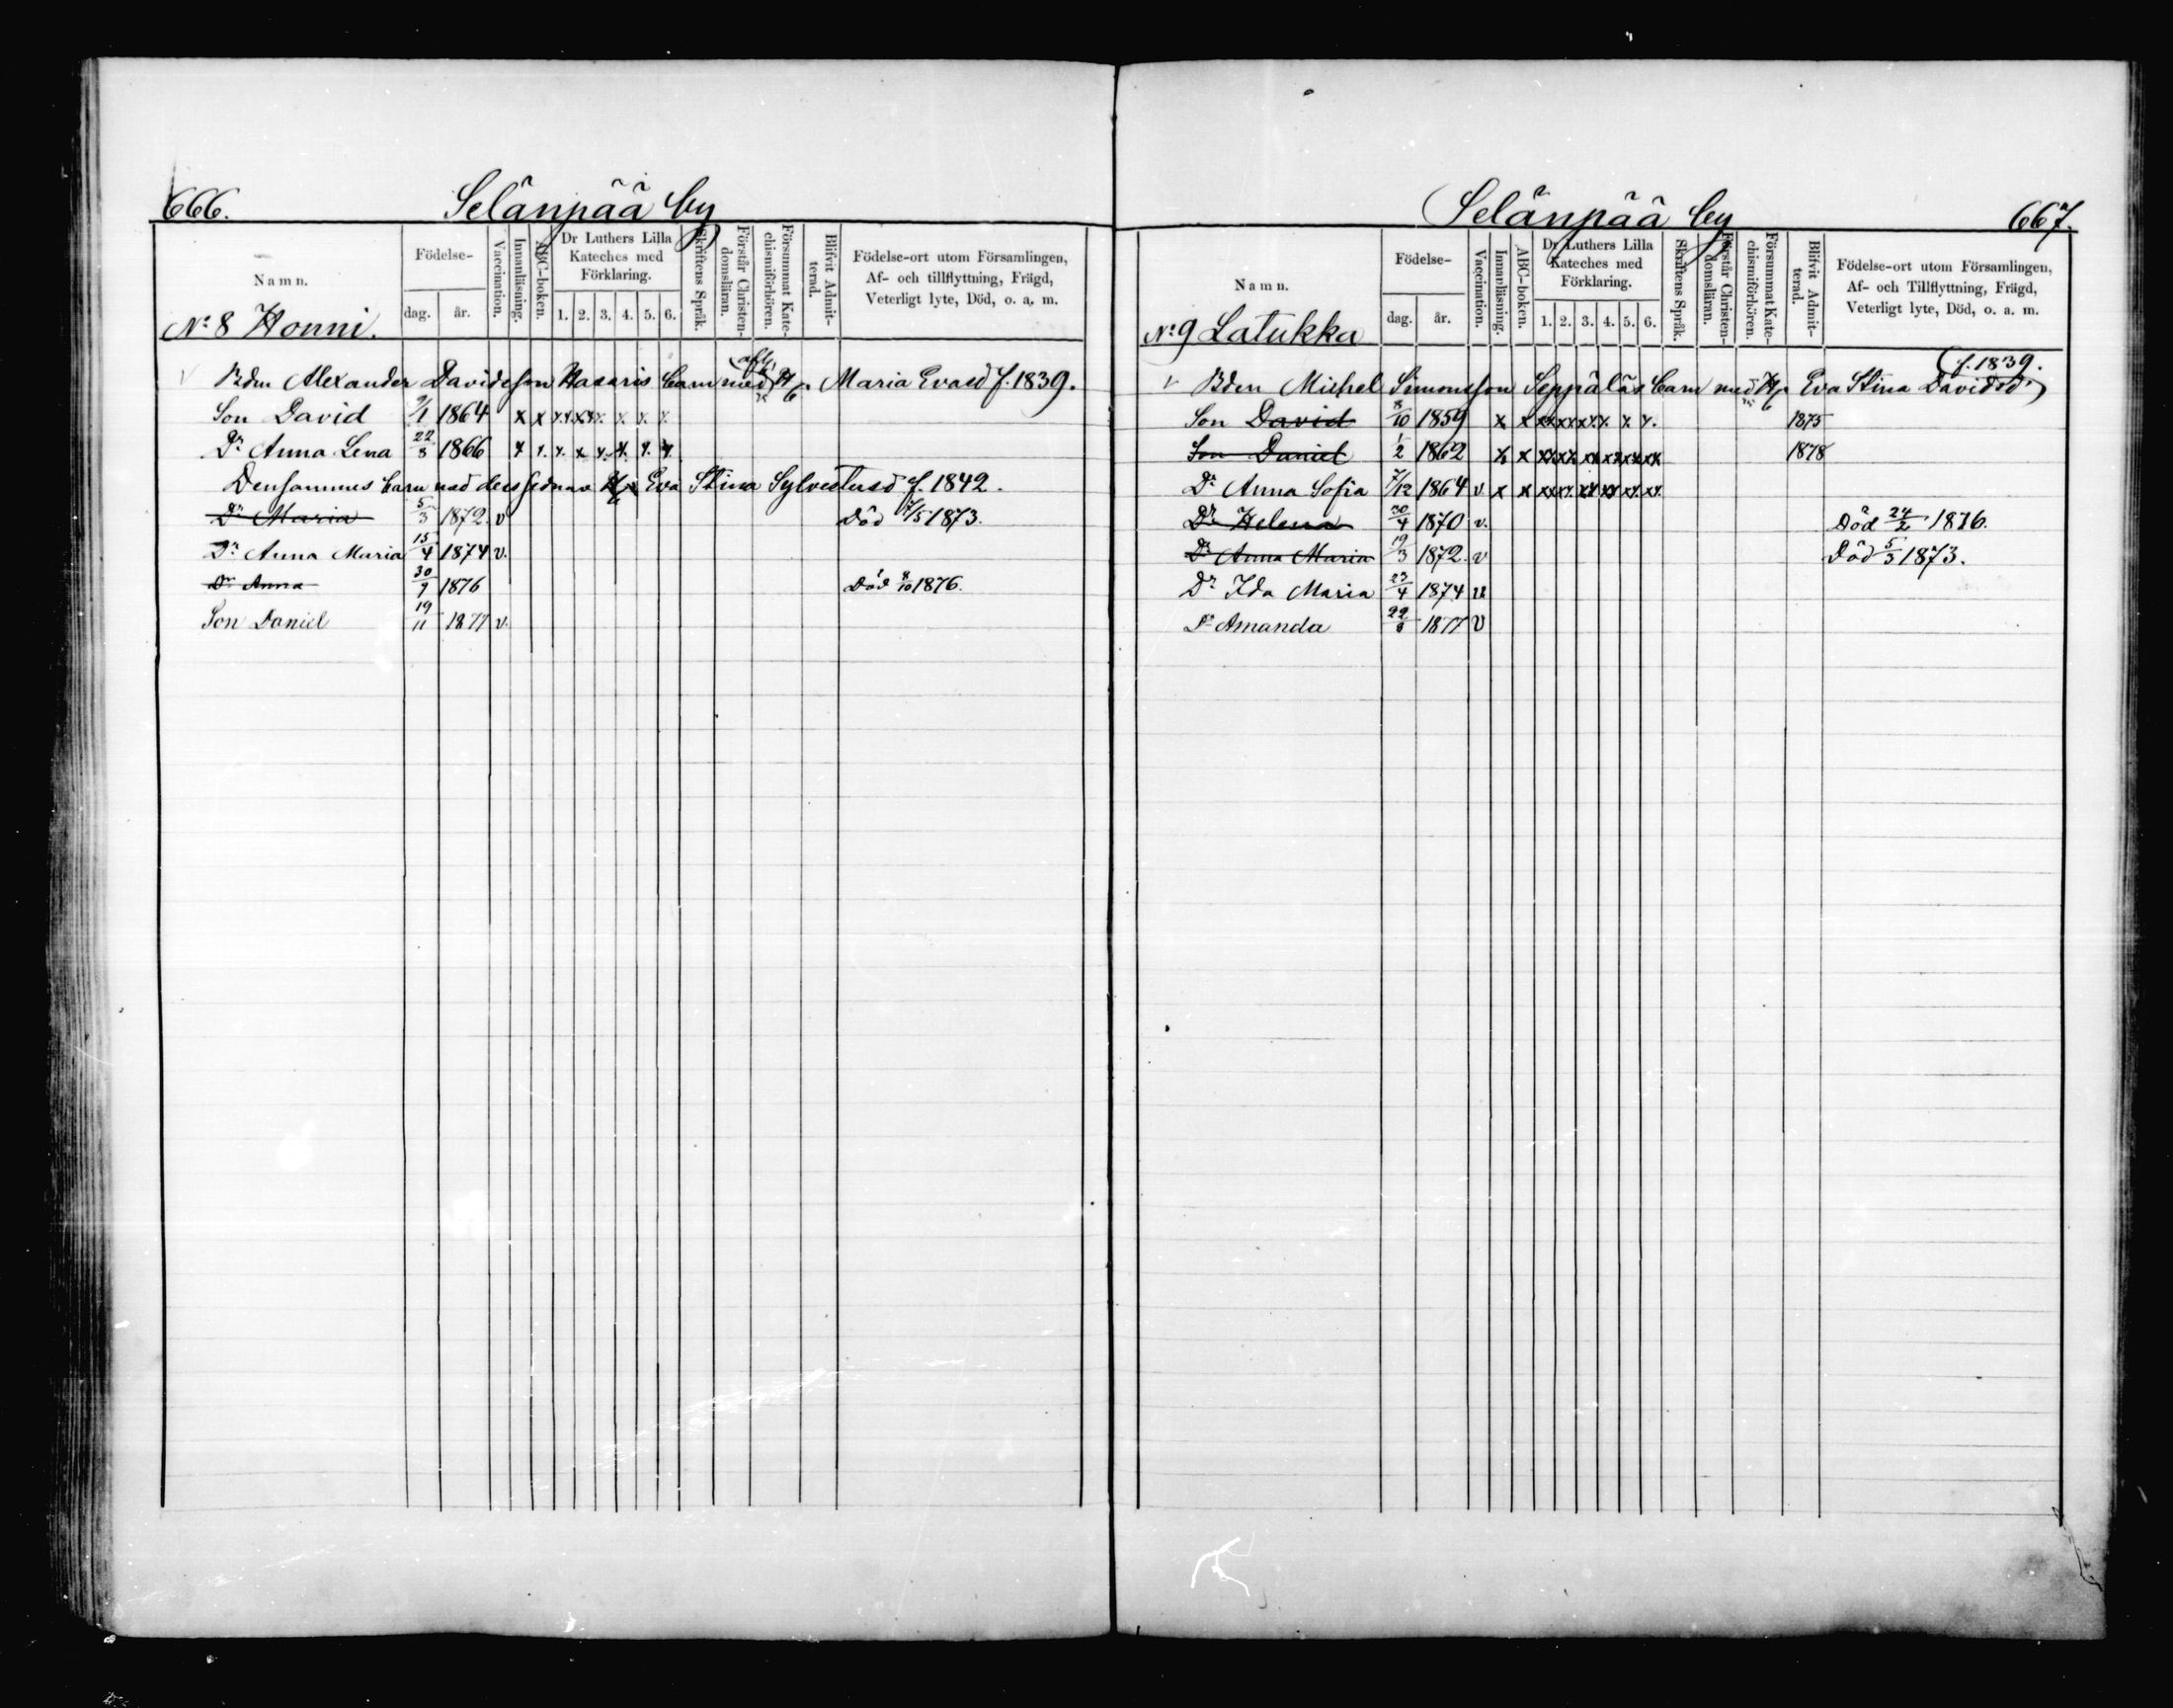 666. Selänpää by
Namn. Födelse- dag. år. Vaccination. Innanläsning. ABC-boken. Dr Luthers Lilla Kateches med Förklaring. 1. 2. 3. 4. 5. 6. Skriftens Språk. Förstår Christendomsläran. Försummat Katechismiförhören. Blifvit Admitterad. Födelse-ort utom Församlingen, Af- och tillflyttning, Frägd, Veterligt lyte, Död, o. a. m.
No 8 Honni.
v Bdn Alexander Davidsson Hasaris barn med afl. H Maria Evasd f. 1839.
Son David 9/1 1864 x x x x x x x x
Dr Anna Lena 22/8 1866 x x x x x x x x
Densammes barn med dess sednare H Eva Stina Sylvestersd f. 1842.
Dr Maria 5/3 1872. v Död 7/5 1873.
Dr Anna Maria 15/4 1874 v.
Dr Anna 30/9 1876 Död 8/10 1876.
Son Daniel 19/11 1877 v.
Selänpää by 667.
Namn. Födelse- dag. år. Vaccination. Innanläsning. ABC-boken. Dr Luthers Lilla Kateches med Förklaring. 1. 2. 3. 4. 5. 6. Skriftens Språk. Förstår Christendomsläran. Försummat Katechismiförhören. Blifvit Admitterad. Födelse-ort utom Församlingen, Af- och Tillflyttning, Frägd, Veterligt lyte, Död, o. a. m.
No 9 Latukka
v Bden Michel Simonsson Seppäläs barn med H Eva Stina Davidsd f. 1839.
Son David 8/10 1859 x x xx xx xx x x x. 1875
Son Daniel 1/2 1862 x x xx xx xx xx xx xx 1878
Dr Anna Sofia 7/12 1864 v x x xx xx xx xx xx xx
Dr Helena 30/4 1870 v. Död 24/2 1876.
Dr Anna Maria 19/3 1872. v Död 5/3 1873.
Dr Ida Maria 23/4 1874 v
Dr Amanda 22/8 1877 v